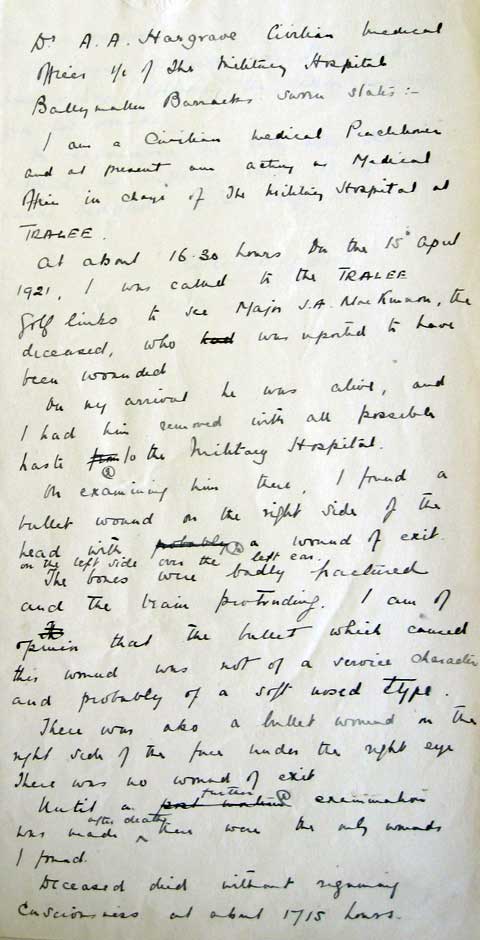 Dr A.A. Hargrave Civilian medical
officer i/c of The Military Hospital
Ballymullen Barracks sworn states:-
I am a Civilian medical Practitioner
and at present am acting as Medical
Officer in charge of The Military Hospital at
TRALEE.
At about 16.30 hours On the 15th April
1921, I was called to the TRALEE
Golf links to see Major J.A. MacKinnon, the
deceased, who had was reported to have
been wounded
On my arrival he was alive, and
I had him removed with all possible
haste from to the Military Hospital.
On examining him there, I found a
bullet wound on the right side of the
head with probably a wound of exit.
on the left side over the left ear.
The bones were badly fractured
and the brain protruding. I am of
Th
opinion that the bullet which caused
this wound was not of a service character
and probably of a soft nosed type.
There was also a bullet wound on the
right side of the face under the right eye
There was no wound of exit
further
Until a post mortem examination
after death
was made there were the only wounds
I found.
Deceased died without regaining
Consciousness at about 1715 hours.